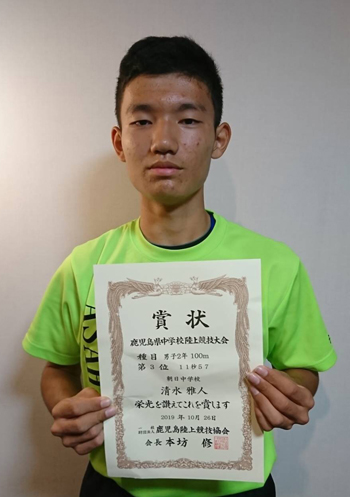 賞状
鹿児島県中学校陸上競技大会
種目 男子2年 100m
第3位 11秒57
朝日中学校
清水 雅人
栄光を讃えてこれを賞します
2019年10月26日
一般財団法人 鹿児島陸上競技協会
会長 本坊 修
ASAH